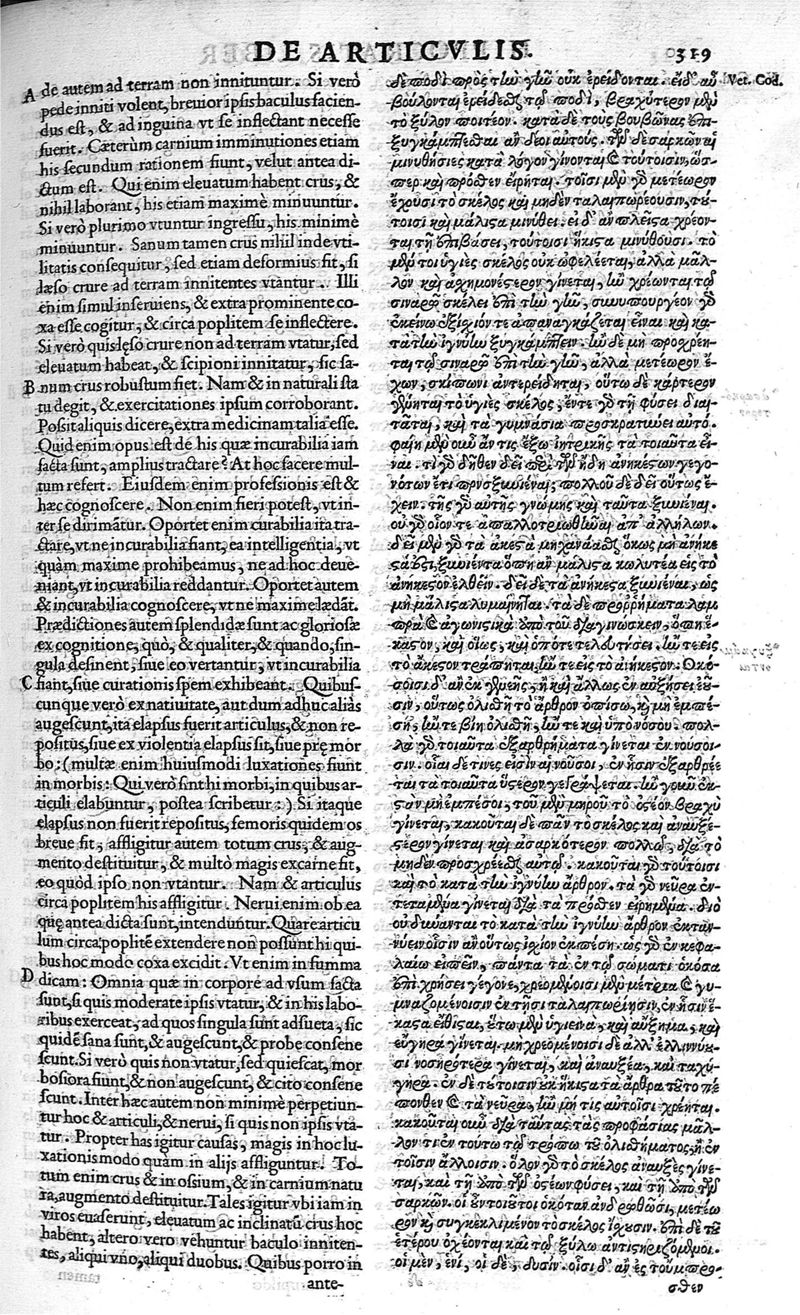 DE ARTICVLIS.
319
A
de autem ad terram non innituntur. Si verò
pede inniti volent, breuior ipſis baculus facien-
dus eſt, & ad inguina vt ſe inflectant neceſſe
fuerit. Cæterùm carnium imminutiones etiam
his ſecundum rationem fiunt, velut antea di-
ctum eſt. Qui enim eleuatum habent crus, &
nihil laborant, his etiam maximè minuuntur.
Si verò plurimo vtuntur ingreſſu, his minimè
minuuntur. Sanum tamen crus nihil inde vti-
litatis conſequitur, ſed etiam deformius fit, ſi
læſo crure ad terram innitentes vtãtur. Illi
enim ſimul inſeruiens, & extra prominente co-
xa eſſe cogitur, & circa poplitem ſe inflectere.
Si verò quis lęſo crure non ad terram vtatur, ſed
eleuatum habeat, & ſcipioni innitatur, ſic ſa-
B
num crus robuſtum fiet. Nam & in naturali ſta
tu degit, & exercitationes ipſum corroborant.
Poſſit aliquis dicere, extra medicinam talia eſſe.
Quid enim opus eſt de his quæ incurabilia iam
facta ſunt, amplius tractare? At hoc facere mul-
tum refert. Eiuſdem enim profeſsionis eſt &
hæc cognoſcere. Non enim fieri poteſt, vt in-
ter ſe dirimãtur. Oportet enim curabilia ita tra-
ctare, vt ne incurabilia fiant, ea intelligentia, vt
quàm maxime prohibeamus, ne ad hoc deue-
niant, vt incurabilia reddantur. Oportet autem
& incurabilia cognoſcere, vt ne maxime lædãt.
Prædictiones autem ſplendidæ ſunt ac glorioſæ
ex cognitione, quò, & qualiter, & quando, ſin-
gula deſinent, ſiue eo vertantur, vt incurabilia
C
fiant, ſiue curationis ſpem exhibeant. Quibuſ-
cunque verò ex natiuitate, aut dum adhuc aliàs
augeſcunt, ita elapſus fuerit articulus, & non re-
poſitus, ſiue ex violentia elapſus ſit, ſiue prę mor
bo: (multæ enim huiuſmodi luxationes fiunt
in morbis: Qui verò ſint hi morbi, in quibus ar-
ticuli elabuntur, poſtea ſcribetur:) Si itaque
elapſus non fuerit repoſitus, femoris quidem os
breue fit, affligitur autem totum crus, & aug-
mento deſtituitur, & multò magis excarne fit,
eo quòd ipſo non vtantur. Nam & articulus
circa poplitem his affligitur. Nerui enim ob ea
quę antea dicta ſunt, intenduntur. Quare articu
lum circa poplitẽ extendere non poſſunt hi qui-
bus hoc modo coxa excidit. Vt enim in ſumma
D
dicam: Omnia quæ in corpore ad vſum facta
ſunt, ſi quis moderate ipſis vtatur, & in his labo-
ribus exerceat, ad quos ſingula ſunt adſueta, ſic
quidẽ ſana ſunt, & augeſcunt, & probe conſene
ſcunt. Si verò quis non vtatur, ſed quieſcat, mor
boſiora fiunt, & non augeſcunt, & cito conſene
ſcunt. Inter hæc autem non minimè perpetiun-
tur hoc & articuli, & nerui, ſi quis non ipſis vtã-
tur. Propter has igitur cauſas, magis in hoc lu-
xationis modo quàm in alijs affliguntur. To-
tum enim crus & in oſsium, & in carnium natu
ra, augmento deſtituitur. Tales igitur vbi iam in
viros euaſerunt, eleuatum ac inclinatũ crus hoc
habent, altero vero vehuntur baculo inniten-
tes, aliqui vno, aliqui duobus. Quibus porro in
ante-
δε ποδὶ πρὸς τὴν γῆν οὐκ ἐρείδονται. εἰ δ' αὖ
βούλονται ἐρείδεσθαι τῷ ποδὶ, βραχύτερον μὲν
τὸ ξύλον ποιτέον. κατὰ δὲ τοὺς βουβῶνας ἐπι-
ξυγκάμπτεσθαι ἂν δέοι αὐτούς. τῶν δὲ σαρκῶν αἱ
μινυθήσιες κατὰ λόγον γίνονται καὶ τούτοισιν, ὥσ-
περ καὶ πρόσθεν εἴρηται. τοῖσι μὲν γὰρ μετέωρον
ἔχουσι τὸ σκέλος καὶ μηδὲν ταλαιπωρέουσιν, τού-
τοισι καὶ μάλιστα μινύθει. οἳ δ' ἂν πλεῖστα χρέον-
ται τῇ ἐπιβάσει, τούτοισι ἥκιστα μινύθουσι. τὸ
μέν τοι ὑγιὲς σκέλος οὐκ ὠφελέεται, ἀλλὰ μᾶλ-
λον καὶ ἀσχημονέστερον γίνεται, ἢν χρέωνται τῷ
σιναρῷ σκέλει ἐπὶ τὴν γῆν, συνυπουργέον γὰρ
ἐκείνῳ ἐξίσχιόν τε ἀπαναγκάζεται εἶναι καὶ κα-
τὰ τὴν ἰγνύην ξυγκάμπτειν. ἢν δὲ μὴ προσχρέη-
ται τῷ σιναρῷ ἐπὶ τὴν γῆν, ἀλλὰ μετέωρον ἔ-
χων, σκίπωνι ἀντερείδηται, οὕτω δὲ κάρτερον
γίνηται τὸ ὑγιὲς σκέλος, ἔν τε γὰρ τῇ φύσει διαι-
τᾶται, καὶ τὰ γυμνάσια προσκρατύνει αὐτό.
φαίη μὲν οὖν ἄν τις ἔξω ἰητρικῆς τὰ τοιαῦτα εἶ-
ναι. τί γὰρ δῆθεν δεῖ περὶ τῶν ἤδη ἀνηκέστων γεγο-
νότων ἔτι προσξυνιέναι; πολλοῦ δὲ δεῖ οὕτως ἔ-
χειν. τῆς γὰρ αὐτῆς γνώμης καὶ ταῦτα ξυνιέναι.
οὐ γὰρ οἷόν τε ἀπαλλοτριωθῆναι ἀπ' ἀλλήλων.
δεῖ μὲν γὰρ τὰ ἀκεστὰ μηχανάασθαι ὅκως μὴ ἀνήκε
στα ἔσται, ξυνιέντα ὅπη ἂν μάλιστα κωλυτέα ἐς τὸ
ἀνήκεστον ἐλθεῖν. δεῖ δὲ τὰ ἀνήκεστα ξυνιέναι, ὡς
μὴ μάλιστα λυμαίνηται. τὰ δὲ προῤῥήματα λαμ
πρὰ καὶ ἀγωνιστικὰ ἀπὸ τοῦ διαγινώσκειν, ὅπη ἕ-
καστον, καὶ οἵως, καὶ ὁπότε τελευτήσει. ἤν τε εἰς
τὸ ἀκεστὸν τράπηται, ἤν τε εἰς τὸ ἀνήκεστον. Ὁκό-
σοισι δ' ἂν ἐκ γενεῆς, ἢ καὶ ἄλλως ἐν αὐξήσει ἐοῦ-
σιν, οὕτως ὀλισθῇ τὸ ἄρθρον ὀπίσω, καὶ μὴ ἐμπέ-
σῃ, ἤν τε βίῃ ὀλισθῇ, ἤν τε καὶ ὑπὸ νούσου. πολ-
λὰ γὰρ τοιαῦτα ἐξαρθρήματα γίνεται ἐν νούσοι-
σιν. οἷαι δέ τινές εἰσιν αἱ νοῦσοι, ἐν ᾗσιν ἐξαρθρέε
ται τὰ τοιαῦτα ὕστερον γεγράψεται. ἢν γοῦν ἐκ-
στὰν μὴ ἐμπέσοι, τοῦ μὲν μηροῦ τὸ ὀστέον βραχὺ
γίνεται, κακοῦται δὲ πᾶν τὸ σκέλος καὶ ἀναυξέ-
στερον γίνεται καὶ ἀσαρκότερον πολλῷ, διὰ τὸ
μηδὲν προσχρέεσθαι αὐτῷ. κακοῦται γὰρ τούτοισι
καὶ τὸ κατὰ τὴν ἰγνύην ἄρθρον. τὰ γὰρ νεῦρα ἐν-
τεταμένα γίνεται διὰ τὰ πρόσθεν εἰρημένα. διὸ
οὐ δύνανται τὸ κατὰ τὴν ἰγνύην ἄρθρον ἐκταν-
νύειν οἷσιν ἂν οὕτως ἰσχίον ἐκπέσῃ. ὡς γὰρ ἐν κεφα-
λαίῳ εἰπεῖν, πάντα τὰ ἐν τῷ σώματι ὁκόσα
ἐπὶ χρήσει γέγονε, χρεομένοισι μὲν μέτρια καὶ γυ-
μναζομένοισιν ἐν τῇσι ταλαιπωρίῃσιν, ἐν ᾗσιν ἕ-
καστα εἴθισται, οὕτω μὲν ὑγιεινὰ, καὶ αὔξημα, καὶ
εὔγηρα γίνεται. μὴ χρεομένοισι δὲ ἀλλ' ἐλιννύου-
σι νοσηρότερα γίνεται, καὶ ἀναυξέα, καὶ ταχύ-
γηρα. ἐν δὲ τούτοισιν οὐχ ἥκιστα τὰ ἄρθρα τοῦτο πέ
πονθεν καὶ τὰ νεῦρα, ἢν μή τις αὐτοῖσι χρέηται.
κακοῦται οὖν διὰ ταύτας τὰς προφάσιας μᾶλ-
λόν τι ἐν τούτῳ τῷ τρόπῳ τοῦ ὀλισθήματος, ἢ ἐν
τοῖσιν ἄλλοισιν. ὅλον γὰρ τὸ σκέλος ἀναυξὲς γίνε-
ται, καὶ τῇ ἀπὸ τῶν ὀστέων φύσει, καὶ τῇ ἀπὸ τῶν
σαρκῶν. οἱ οὖν τοιοῦτοι ὁκόταν ἀνδρωθῶσι, μετέω
ρον καὶ συγκεκλιμένον τὸ σκέλος ἴσχουσιν. ἐπὶ δὲ τοῦ
ἑτέρου ὀχέονται καὶ τῷ ξύλῳ ἀντιστηριζόμενοι.
οἱ μὲν, ἑνὶ, οἱ δὲ, δυσίν. οἷσι δ' ἂν ἐς τοὔμπρο-
σθεν
Vet. Cod.